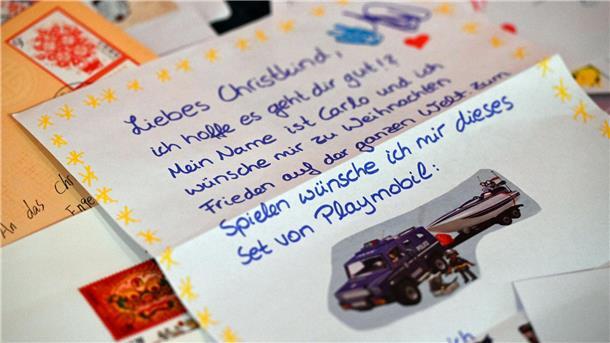 Liebes Christkind,
ich hoffe es geht dir gut!?
Mein Name ist Carlo und ich
wünsche mir zu Weihnachten
Frieden auf der ganzen Welt. Zum
Spielen wünsche ich mir dieses
Set von Playmobil:
An das Chr
Enge
ich